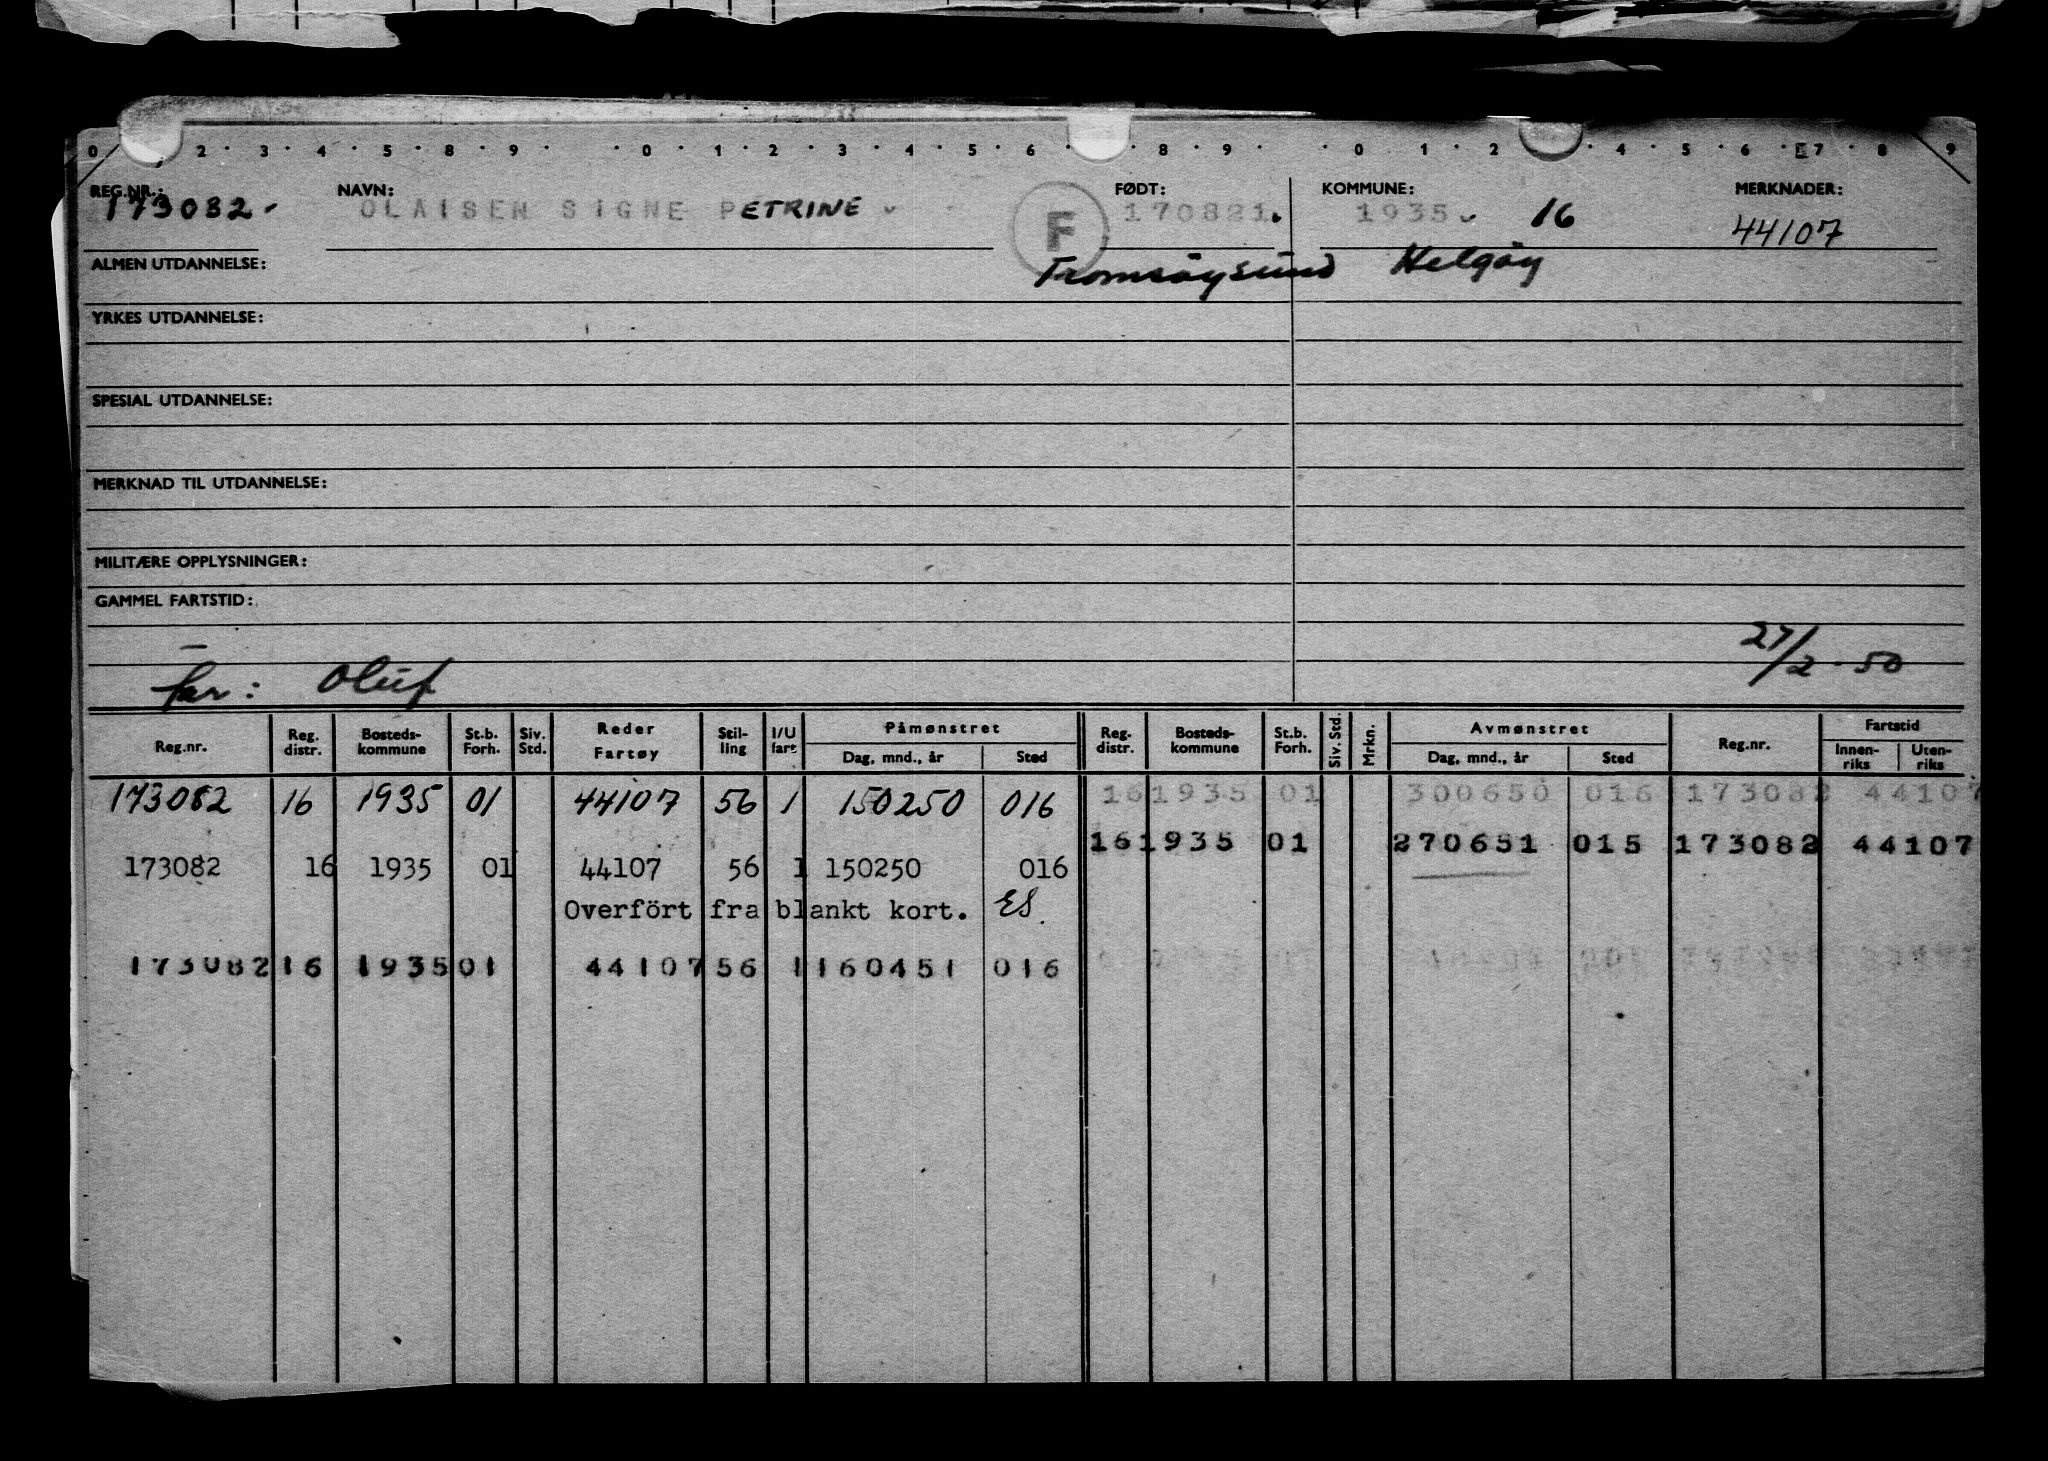 0 · 2 · 3 · 4 · 5 · 8 · 9 · · 0 · 1 · 2 · 3 · 4 · 5 · 6 · 8 · 9 · · 0 · 1 · 2 · 4 · 5 · 6 · 7 · 8 · 9
REG.NR.: NAVN: FØDT: KOMMUNE: MERKNADER:
173082. OLAISEN SIGNE PETRINE F 170821. 1935 16 44107
ALMEN UTDANNELSE: Tromsöysund Helgöy
YRKES UTDANNELSE:
SPESIAL UTDANNELSE:
MERKNAD TIL UTDANNELSE:
MILITÆRE OPPLYSNINGER:
GAMMEL FARTSTID:
27/2-50
far: Oluf
Reg.nr. Reg. distr. Bosteds-kommune St.b. Forh. Siv. Std. Reder Fartøy Stil-ling I/U fart Påmønstret Dag, mnd., år Sted Reg. distr. Bosteds-kommune St.b. Forh. Siv. Std. Mrkn. Avmønstret Dag, mnd., år Sted Reg.nr. Fartstid Innen-riks Uten-riks
173082 16 1935 01 44107 56 1 150250 016 16 1935 01 300650 016 173082 44107
16 1935 01 270651 015 173082 44107
173082 16 1935 01 44107 56 1 150250 016
Overfört fra blankt kort. ES
173082 16 1935 01 44107 56 1 160451 016